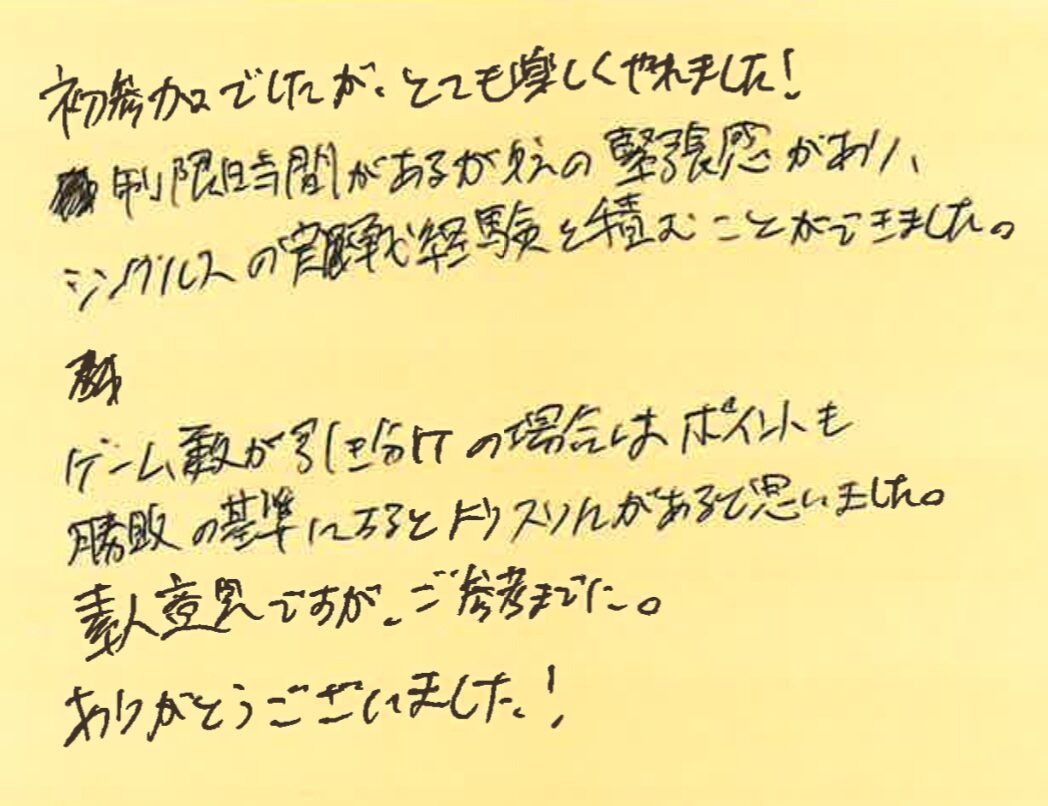 初参加でしたが、とても楽しくやれました!
制限時間があるがゆえの緊張感があり、
シングルスの実戦経験を積むことができました。
ゲーム数が引き分けの場合はポイントも
勝敗の基準になるとよりスリルがあると思いました。
素人意見ですが、ご参考までに。
ありがとうございました!